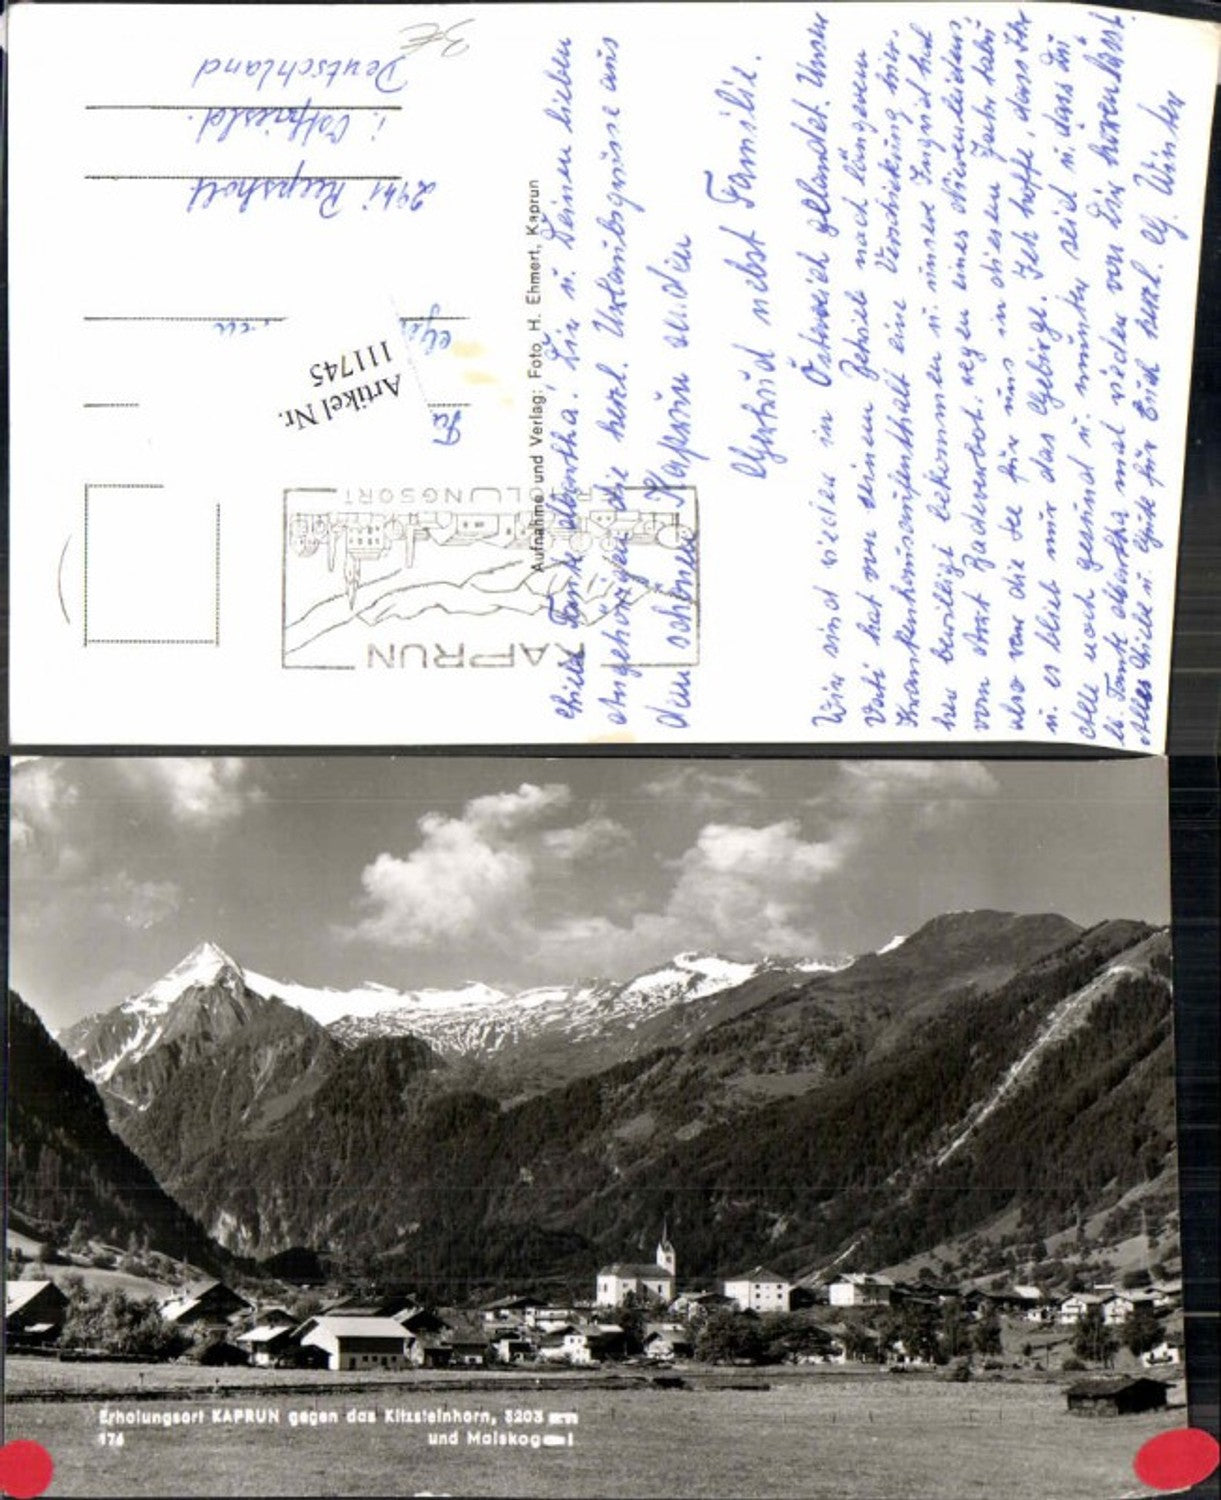 Liebe Tante Martha, Dir u. Deinen lieben
Angehörigen die herzl. Urlaubsgrüsse aus
dem schönen Kaprun senden
Gertrud nebst Familie.
Wir sind wieder in Österreich gelandet. Unser
Vati hat von seinem Betrieb nach längerem
Krankenhausaufenthalt eine Verschickung hier
bewilligt bekommen u. unsere Ingrid hat
vom Arzt Badeverbot wegen eines Nierenleidens,
also war die See für uns in diesem Jahr tabu
u. es blieb nur das Gebirge. Ich hoffe, dass Ihr
alle noch gesund u. munter seid u. dass Du
lb. Tante Martha mal wieder von Dir hören lässt.
Alles Liebe u. Gute für Euch herzl. G. Winter
Aufnahme und Verlag: Foto H. Ehmert, Kaprun
KAPRUN
ERHOLUNGSORT
Artikel Nr.
111745
Reepsholt
i. Ostfriesld.
Deutschland
3€
Erholungsort KAPRUN gegen das Kitzsteinhorn, 3203 m
174
und Maiskogel